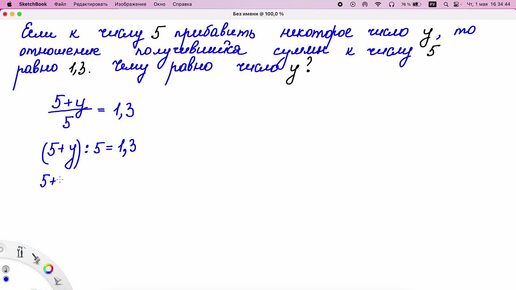 SketchBook Файл Редактировать Изображение Окно Справка
Чт, 1 мая 16 34 44
Без имени @ 100,0 %
Если к числу 5 прибавить некоторое число y, то
отношение получившейся суммы к числу 5
равно 1,3. Чему равно число y?
5+y
5
= 1,3
(5+y) : 5 = 1,3
5+